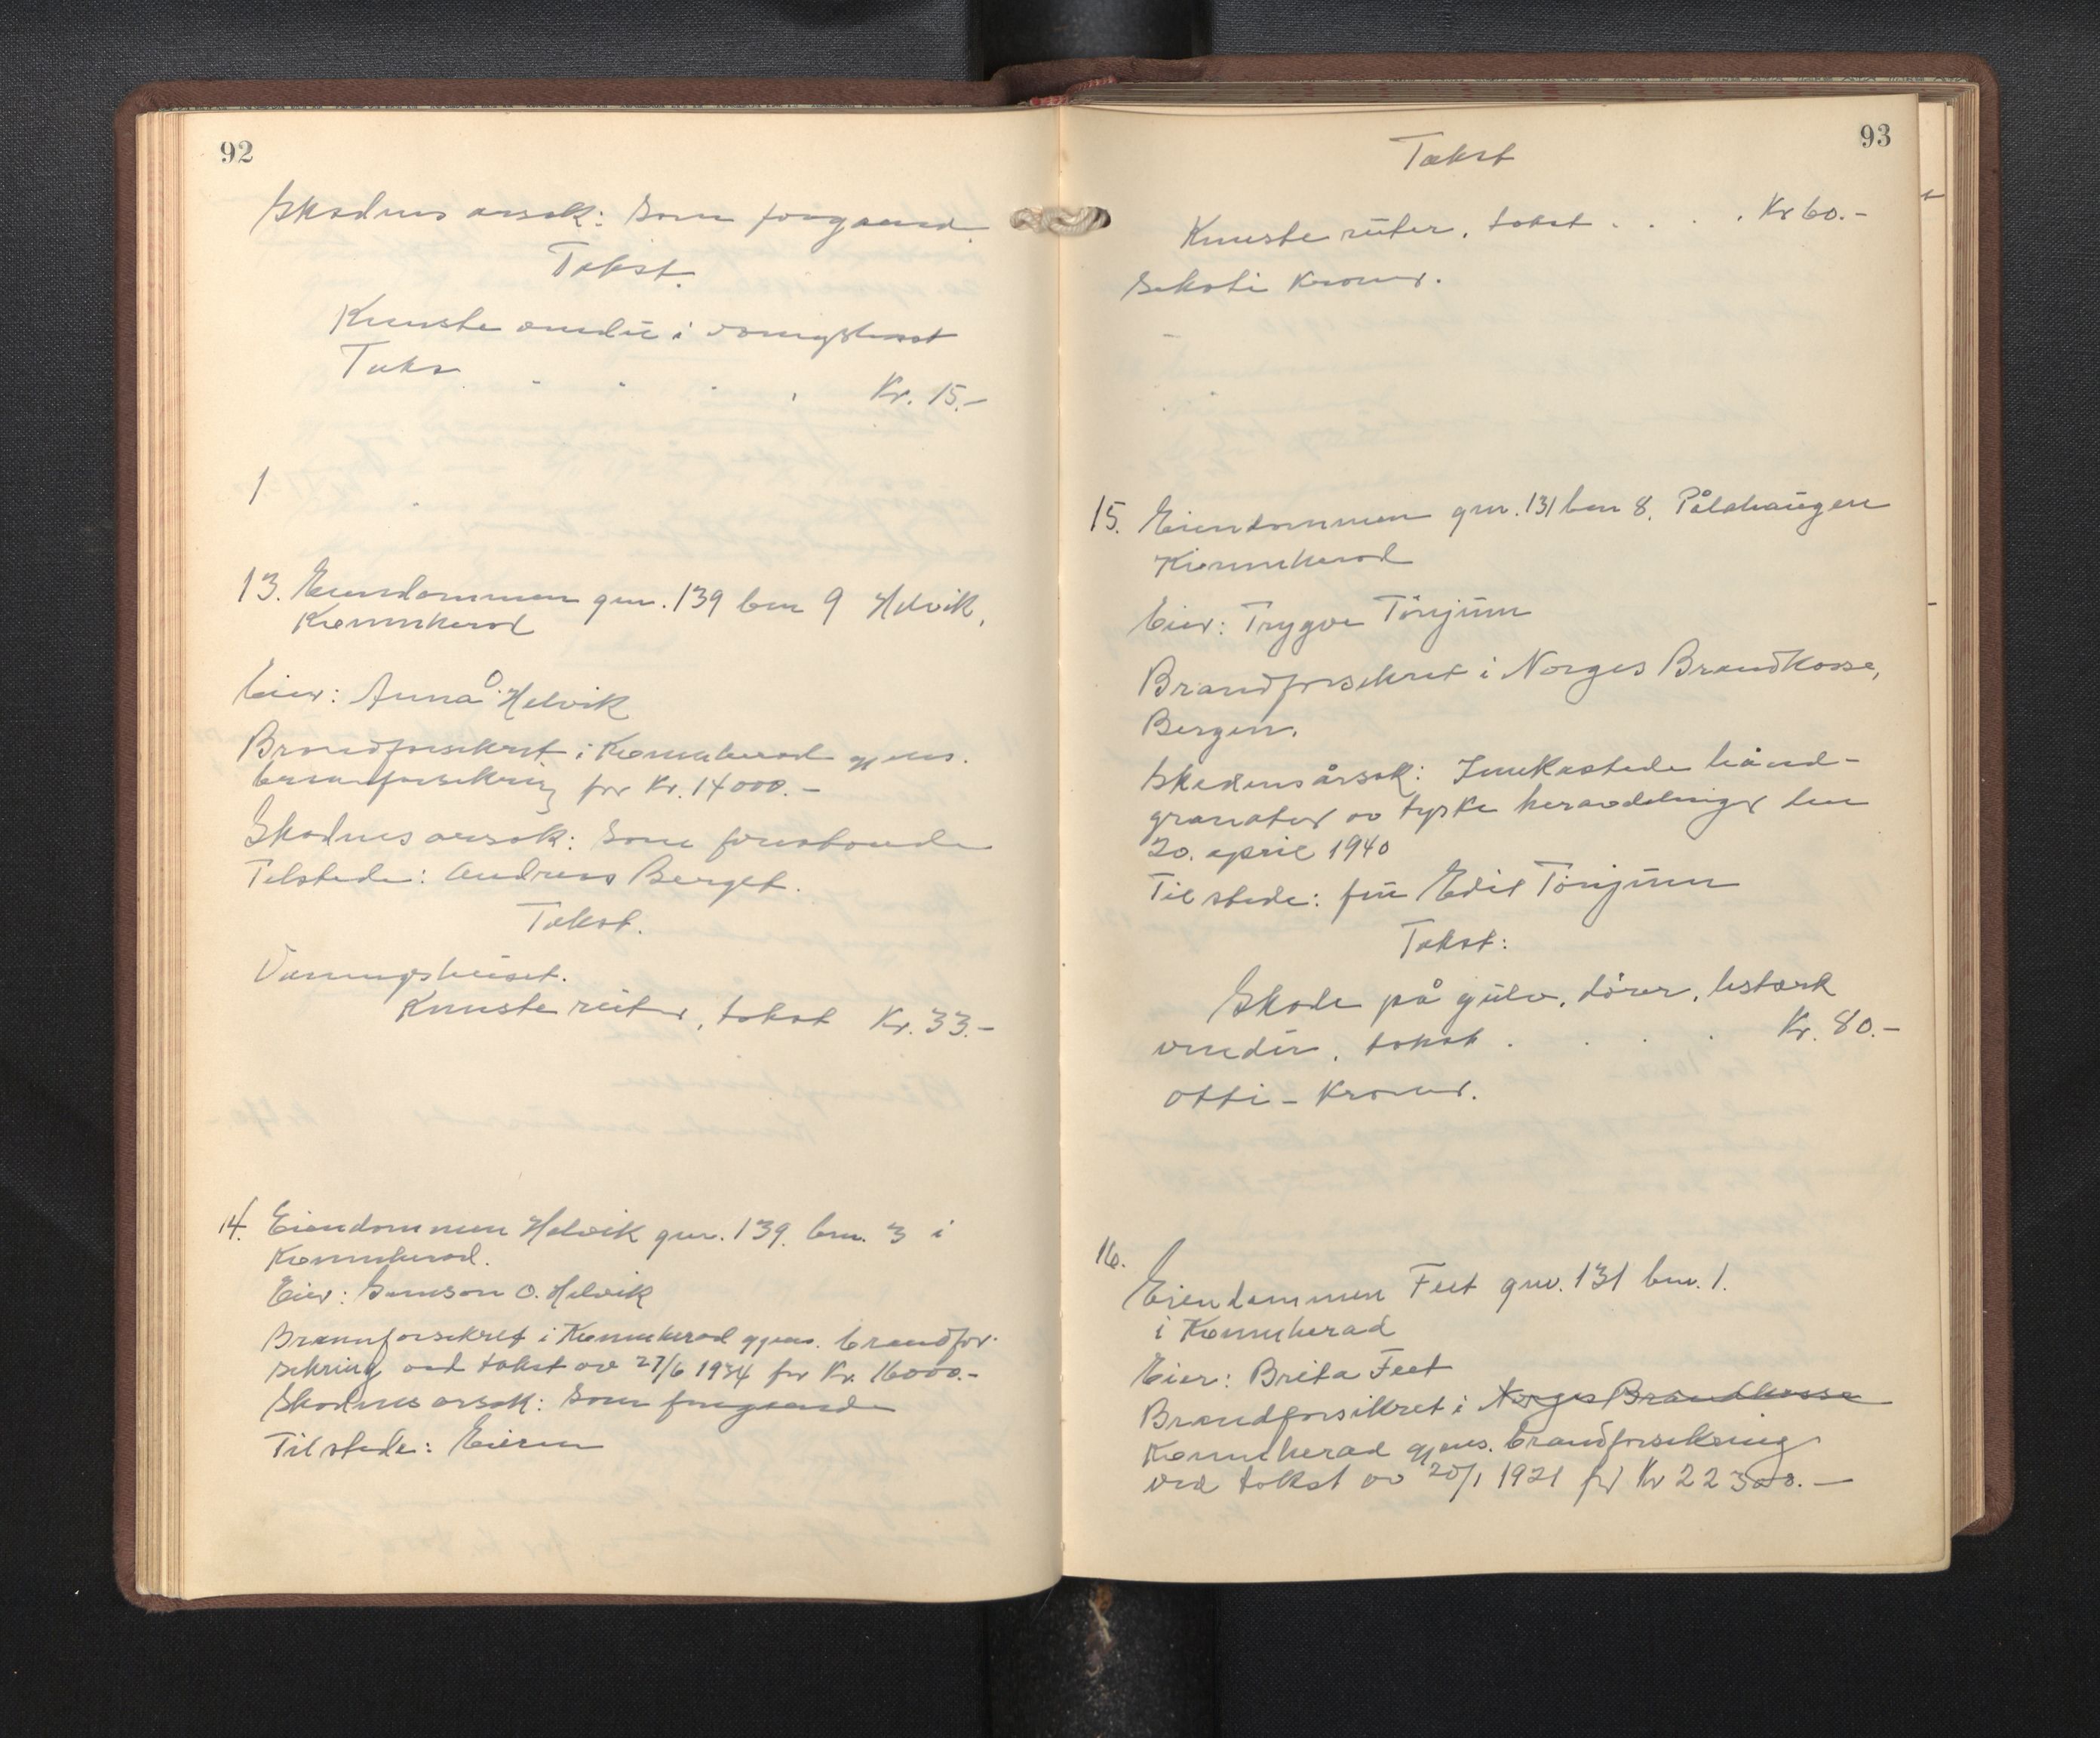 92
Skadens årsak: Som foregaaend.
Takst.
Knuste vinduer i vaaningshuset
Takst . . . . Kr. 15.-
1
13. Eiendommen gnr. 139 bnr 9 Helvik,
Kvinnherad
Eier: Anna O. Helvik
Brandforsikret i Kvinnherad gjens.
brannforsikring for Kr. 14000.-
Skadens årsak: Som forestående
Tilstede: Andreas Berget.
Takst.
Vaaningshuset.
Knuste ruter, takst Kr. 33.-
14. Eiendommen Helvik gnr. 139. bnr. 3 i
Kvinnherad.
Eier: Samson O. Helvik
Brannforsikret i Kvinnherad gjens. brandfor-
sikring ved takst av 27/6 1934 for Kr. 16000.-
Skadens årsak: Som foregaaende
Tilstede: Eieren
93
Takst
Knuste ruter, takst . . . . Kr 60.-
Seksti Kroner.
15. Eiendommen gnr. 131 bnr 8. Pålshaugen
Kvinnherad
Eier: Trygve Tönjum
Brandforsikret i Norges Brandkasse,
Bergen.
Skadens årsak: Innkastede hånd-
granater av tyske heravdelinger den
20. april 1940
Tilstede: fru Edit Tönjum
Takst:
Skade på gulv, dörer,
vinduer, takst . . . . Kr. 80.-
Otti - Kroner.
16.
Eiendommen Feet gnr. 131 bnr. 1.
i Kvinnherad
Eier: Brita Feet
Brandforsikret i Norges Brandkasse
Kvinnherad gjens. brandforsikring
ved takst av 20/1 1921 for Kr 22300.-